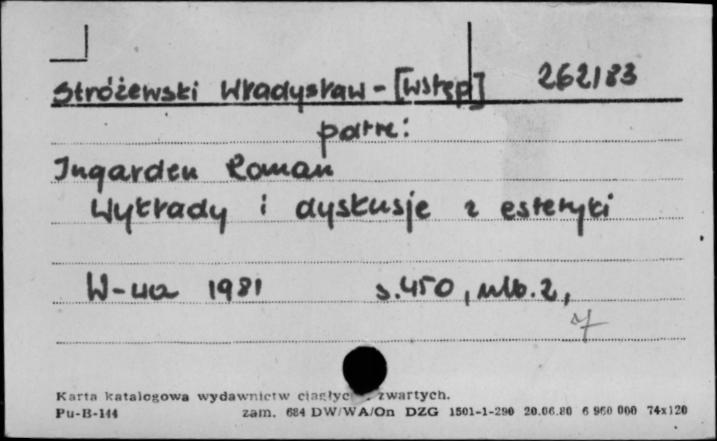 Stróżewski Władysław - [Wstęp] 262183
patrz:
Ingarden Roman
Wykłady i dyskusje z estetyki
W-wa 1981 s.450, nlb.2,
7
Karta katalogowa wydawnictw ciągłyc zwartych.
Pu-B-144 zam. 684 DW/WA/On DZG 1501-1-290 20.06.80 6 960 000 74x120